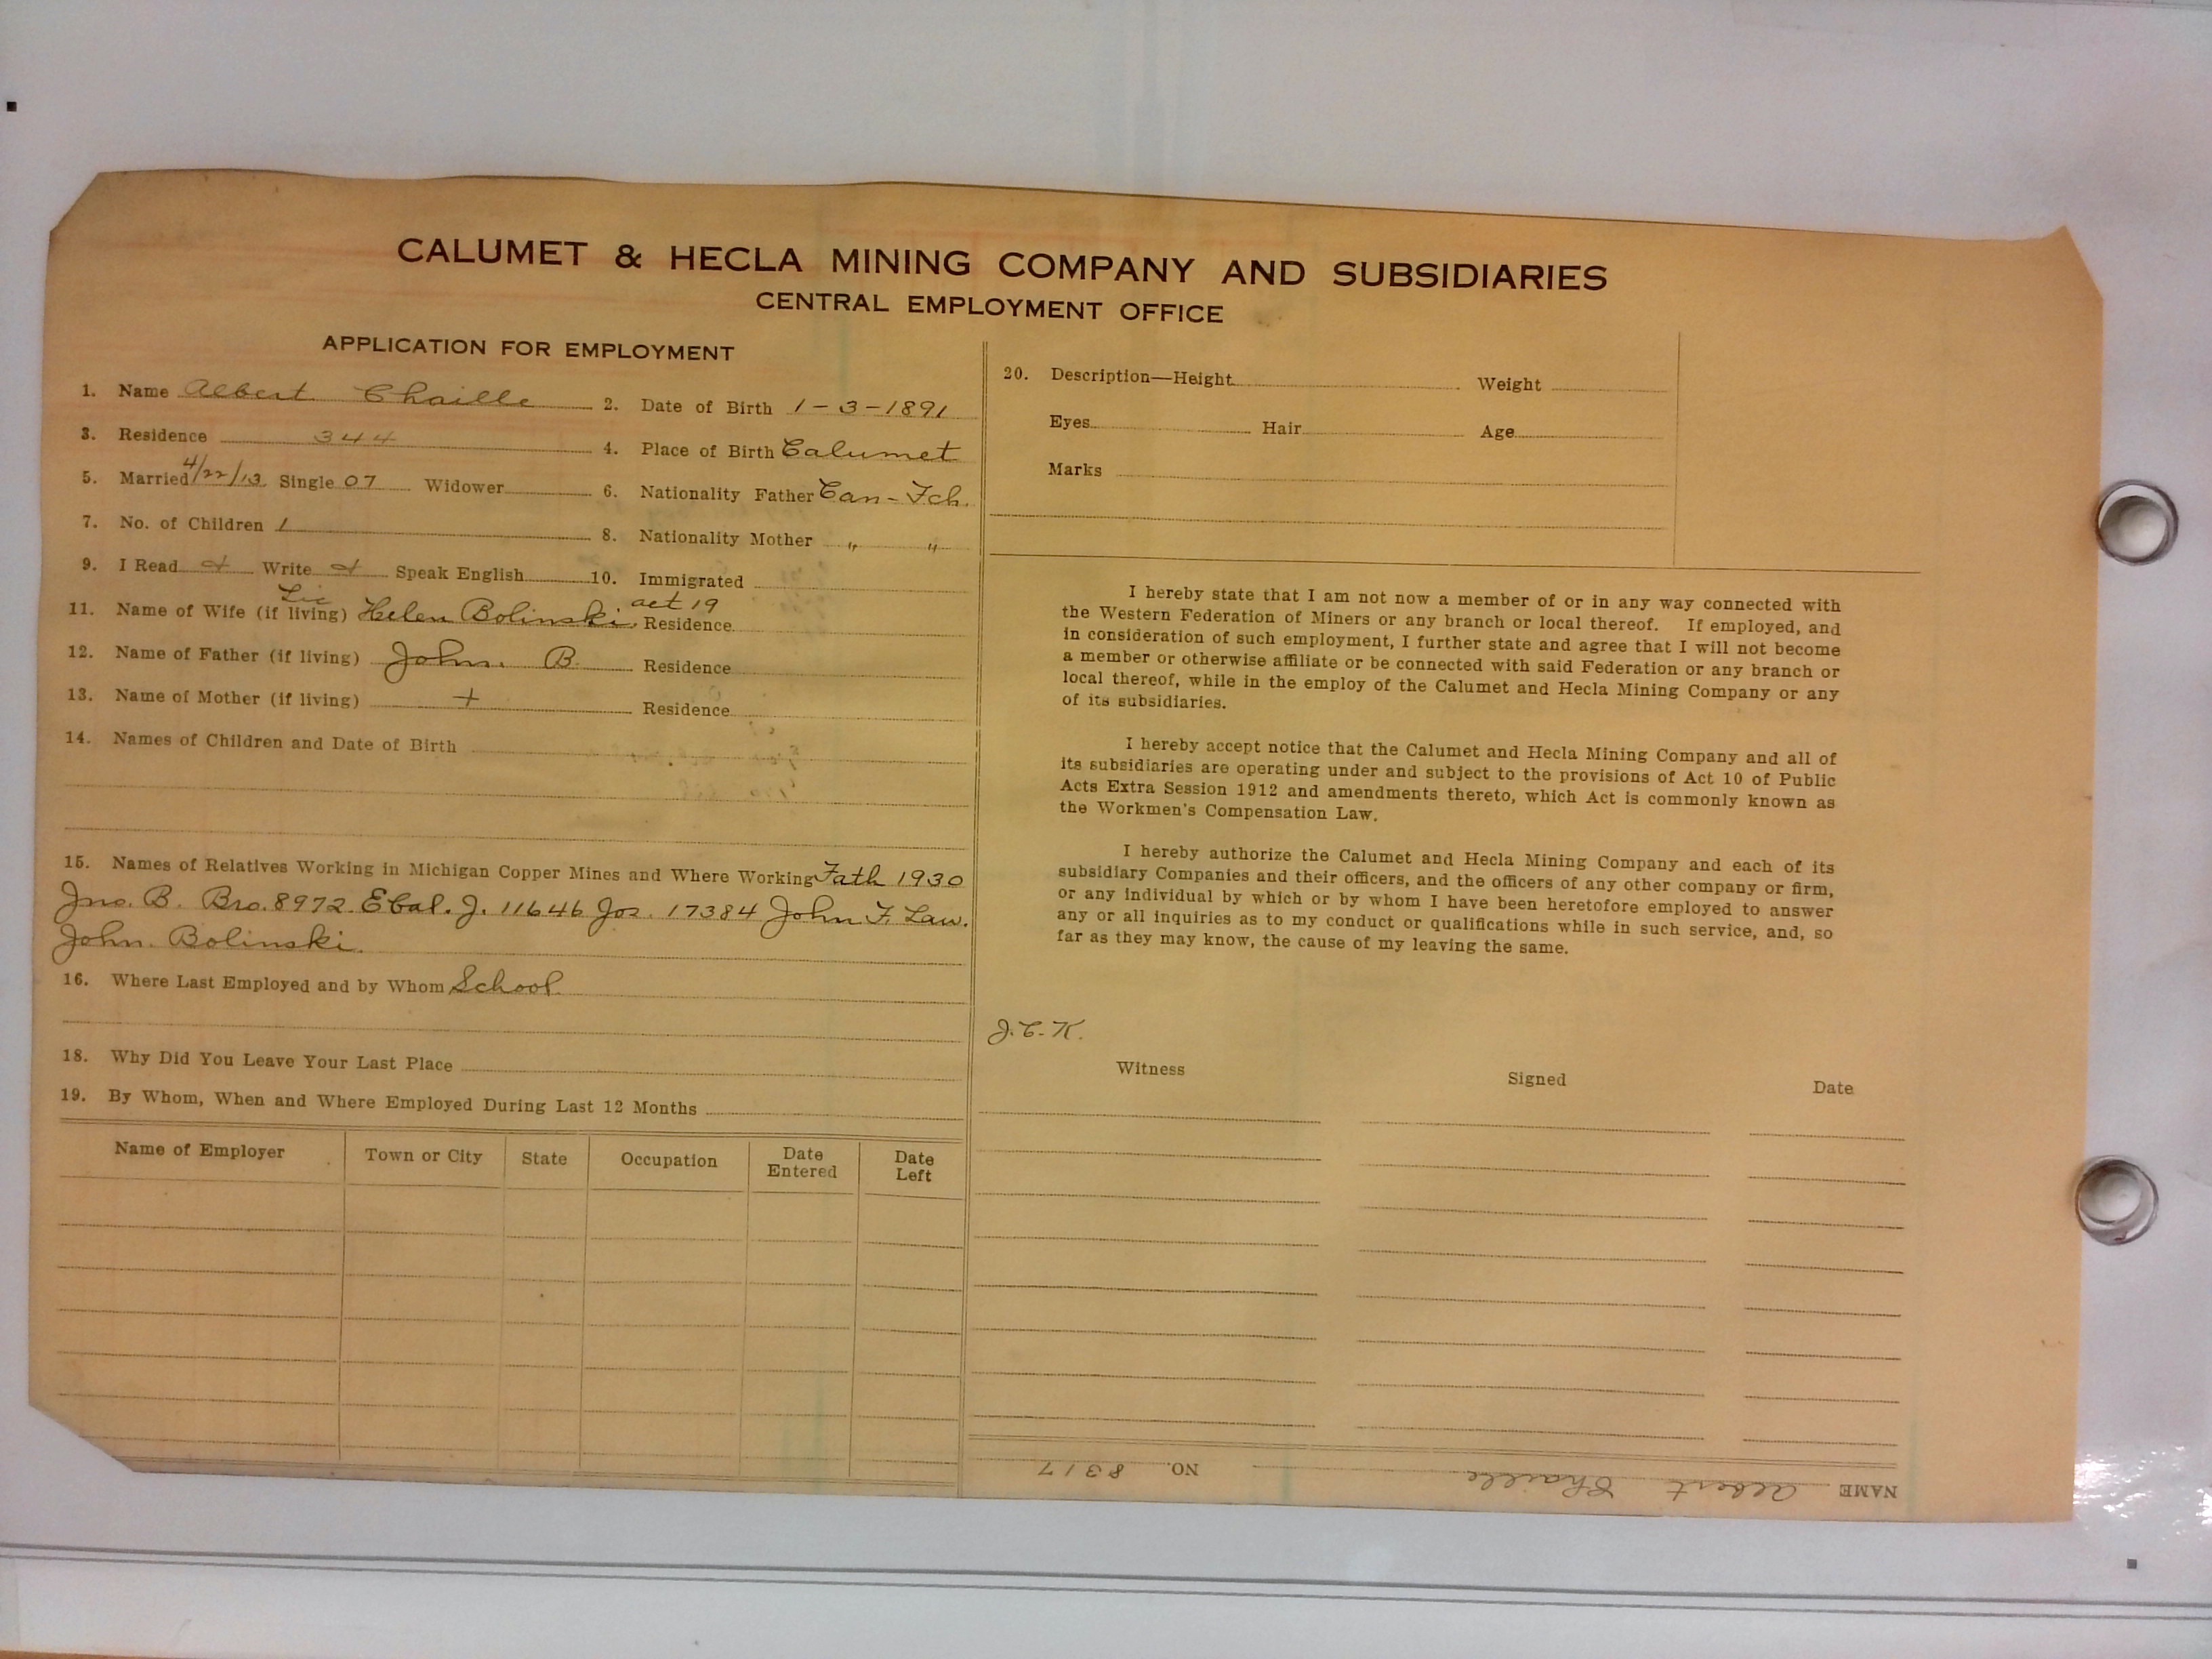 CALUMET & HECLA MINING COMPANY AND SUBSIDIARIES
CENTRAL EMPLOYMENT OFFICE
APPLICATION FOR EMPLOYMENT
1. Name Albert Chaille 2. Date of Birth 1-3-1891
3. Residence 344 4. Place of Birth Calumet
5. Married 4/22/13 Single 07 Widower 6. Nationality Father Can-Fch.
7. No. of Children 1 8. Nationality Mother " "
9. I Read Write Speak English 10. Immigrated
Lic act 19
11. Name of Wife (if living) Helen Bolinski Residence
12. Name of Father (if living) John. B. Residence
13. Name of Mother (if living) + Residence
14. Names of Children and Date of Birth
15. Names of Relatives Working in Michigan Copper Mines and Where Working Fath 1930
Jno. B. Bro. 8972 Ebal. J. 11646 Jos. 17384 John F. Law.
John. Bolinski.
16. Where Last Employed and by Whom School
18. Why Did You Leave Your Last Place
19. By Whom, When and Where Employed During Last 12 Months
Name of Employer Town or City State Occupation Date Entered Date Left
20. Description—Height Weight
Eyes Hair Age
Marks
I hereby state that I am not now a member of or in any way connected with
the Western Federation of Miners or any branch or local thereof. If employed, and
in consideration of such employment, I further state and agree that I will not become
a member or otherwise affiliate or be connected with said Federation or any branch or
local thereof, while in the employ of the Calumet and Hecla Mining Company or any
of its subsidiaries.
I hereby accept notice that the Calumet and Hecla Mining Company and all of
its subsidiaries are operating under and subject to the provisions of Act 10 of Public
Acts Extra Session 1912 and amendments thereto, which Act is commonly known as
the Workmen's Compensation Law.
I hereby authorize the Calumet and Hecla Mining Company and each of its
subsidiary Companies and their officers, and the officers of any other company or firm,
or any individual by which or by whom I have been heretofore employed to answer
any or all inquiries as to my conduct or qualifications while in such service, and, so
far as they may know, the cause of my leaving the same.
J.C.K.
Witness Signed Date
NAME Albert Chaille NO. 8317